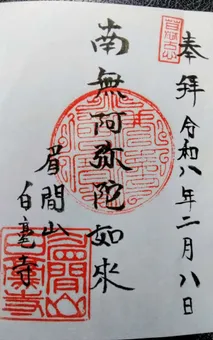 奉拝
令和八年二月八日
南無阿弥陀如来
眉間山
白毫寺